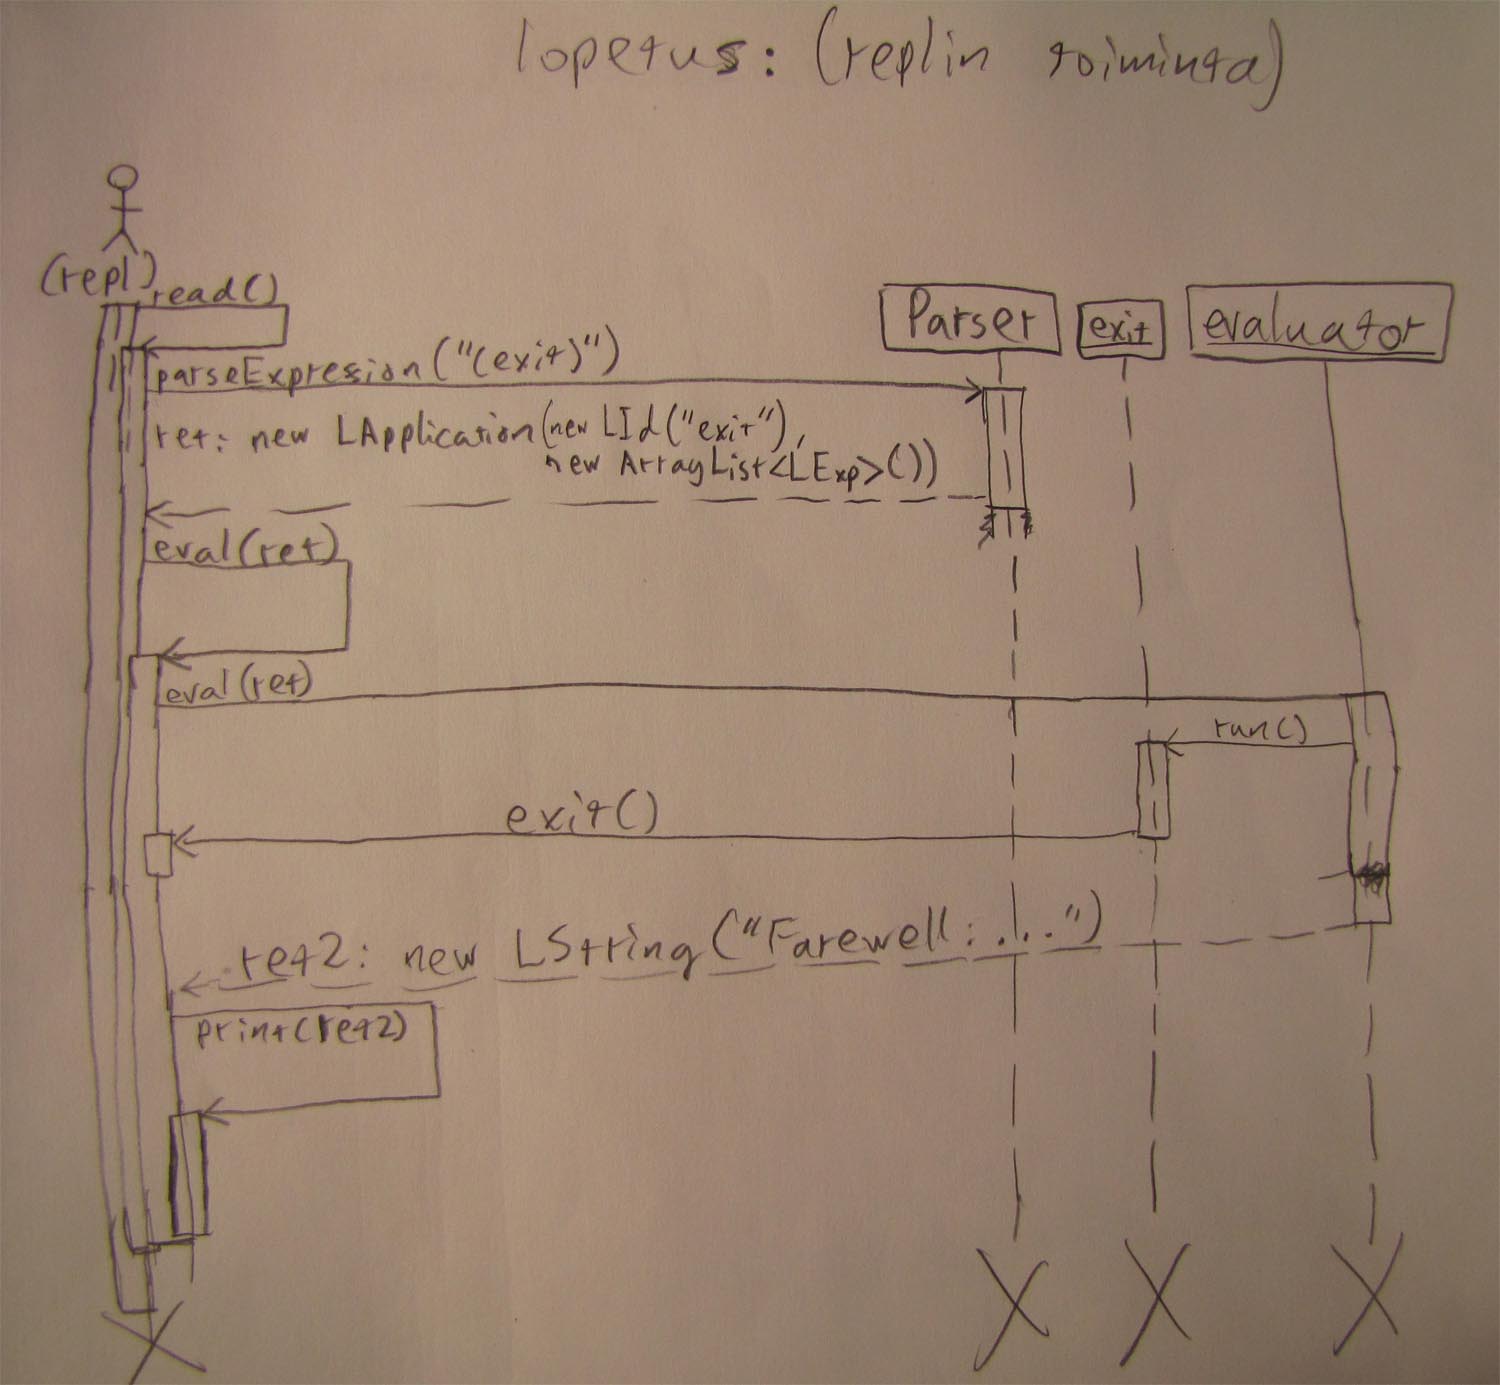 lopetus: (replin toiminta)
(repl)
read()
Parser
exit
evaluator
parseExpression("(exit)")
ret: new LApplication(new LId("exit"),
new ArrayList<LExp>())
eval(ret)
eval(ret)
run()
exit()
ret2: new LString("Farewell: ...")
print(ret2)